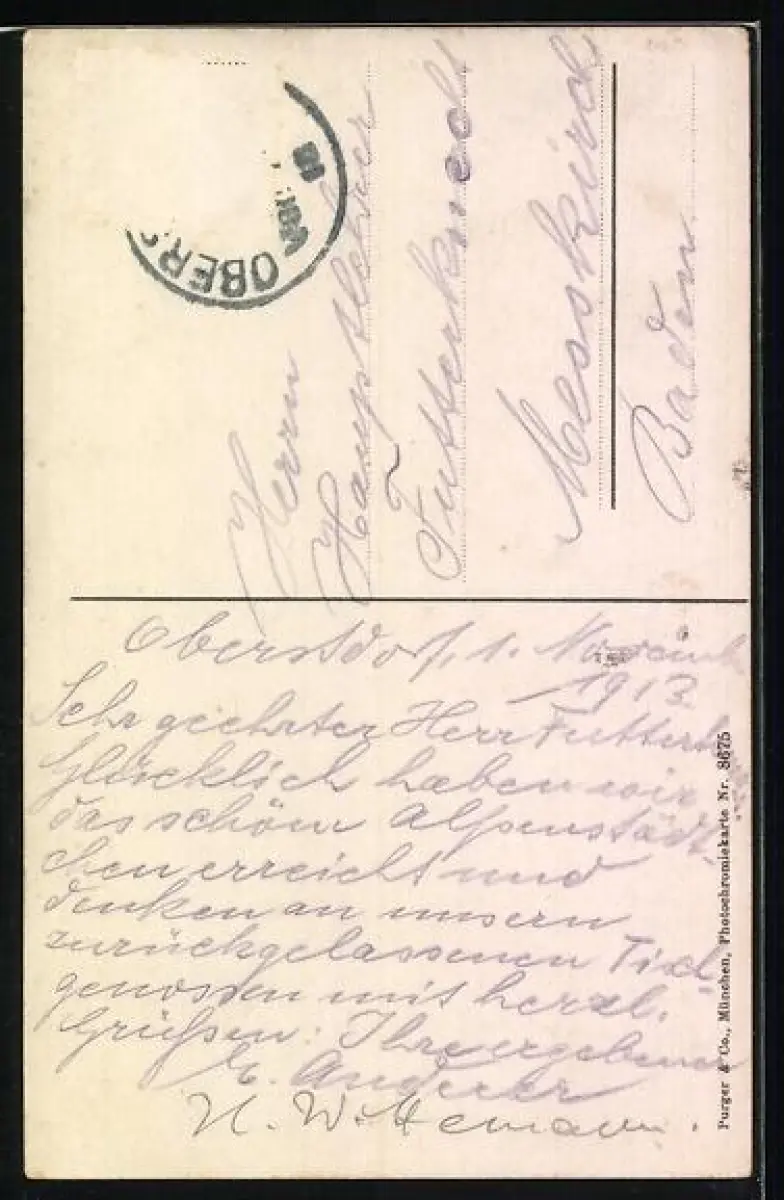 OBERS
Herrn
Hauptlehrer
Futterknecht
Messkirch
Baden
Oberstdorf, 1. Novemb
1913
Sehr geehrter Herr Futterk
Glücklich haben wir
das schöne Alpenstädt-
chen erreicht und
denken an unsern
zurückgelassenen Tisch-
genossen mit herzl.
Grüßen. Ihre ergebenen
E. Anderer
H. Wittemann.
Purger & Co., München, Photochromiekarte Nr. 8675